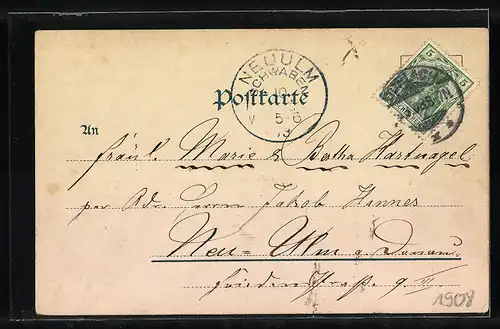 NEUULM
SCHWABEN
5-6
V
Postkarte
5
5
An
Fräul. Marie & Bertha Hartnagel
per Adr. Herrn Jakob Hannes
Neu-Ulm a. Donau
Friedenstraß. 9 III
1908